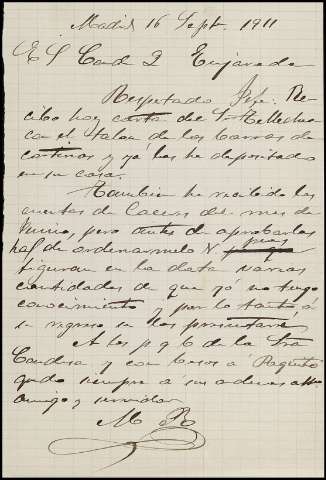 Madrid 16 Sept. 1911
E S Conde 2 Enjarada
Respetado Jefe. Re-
cibo hoy carta del Sr
con el talon de los barros de
cortinas y ya los he depositado
en su casa.
Tambien he recibido las
cuentas de Caceres del mes de
Junio, pero antes de aprobarlas
ha de ordenarmelo V pues
figuran en la data varias
cantidades de que yo no tengo
conocimiento y por lo tanto, á
su regreso se los presentaré
A los p q b de la Sra
Condesa y con besos a Paquito
quedo siempre a sus ordenes affmo
amigo y servidor
M R